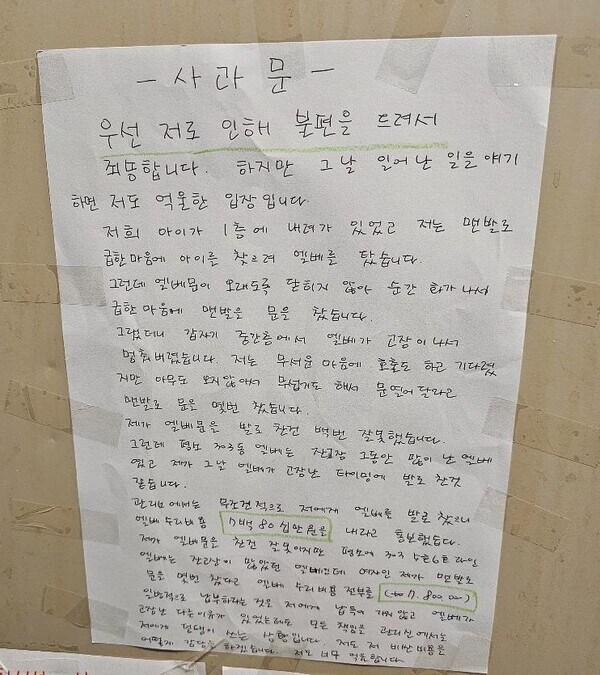 - 사 과 문 -
우선 저로 인해 불편을 드려서
죄송합니다. 하지만 그날 일어난 일을 얘기
하면 저도 억울한 입장입니다.
저희 아이가 1층에 내려가 있었고 저는 맨발로
급한마음에 아이를 찾으려 엘베를 탔습니다.
그런데 엘베문이 오래도록 닫히지 않아 순간 화가나서
급한마음에 맨발로 문을 찼습니다.
그랬더니 갑자기 중간층에서 엘베가 고장이 나서
멈춰버렸습니다. 저는 무서운 마음에 호출도 하고 기다렸
지만 아무도 오지않아서 무섭기도 해서 문열어달라고
맨발로 문을 몇번 찼습니다.
제가 엘베문을 발로 찬건 백번 잘못했습니다.
그런데 평소 303동 엘베는 잔고장 그동안 많이 난 엘베
였고 제가 그날 엘베가 고장난 타이밍에 발로 찬것
같습니다.
관리소에서는 무조건적으로 저에게 엘베를 발로 찼으니
엘베 수리비용 7백 80 십만원을 내라고 통보했습니다.
제가 엘베문을 찬건 잘못이지만 평소에 303 5호6호 라인
엘베는 잔고장이 많았던 엘베인데 여자인 제가 맨발로
문을 몇번 찼다고 엘베 수리비용 전부를
일방적으로 납부하라는 것은 저에게 납득이 가지 않고 엘베가
고장난 다른이유가 있었는데도 모든 책임을 관리실에서는
저에게 덤탱이 쓰는 상황입니다. 저도 저 비싼비용을
어떻게 감당을 하겠습니까. 저도 너무 억울합니다.